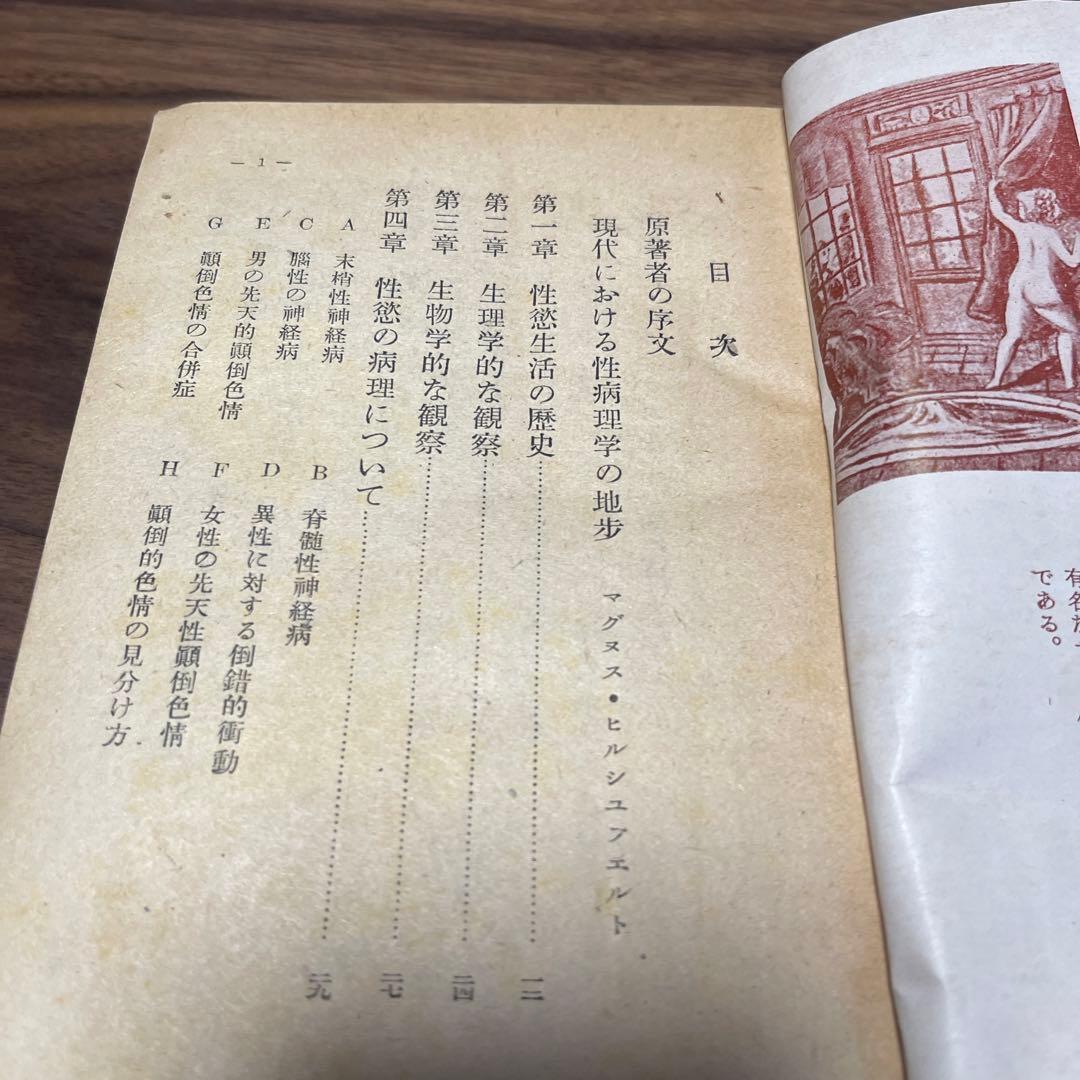 有名な
である。
目次
原著者の序文
現代における性病理学の地歩 マグヌス・ヒルシユフエルト
第一章 性慾生活の歴史……一二
第二章 生理学的な観察……二四
第三章 生物学的な観察……二七
第四章 性慾の病理について……二九
A 末梢性神経病
B 脊髄性神経病
C 腦性の神経病
D 異性に対する倒錯的衝動
E 男の先天的顚倒色情
F 女性の先天性顚倒色情
G 顚倒色情の合併症
H 顚倒的色情の見分け方
— 1 —